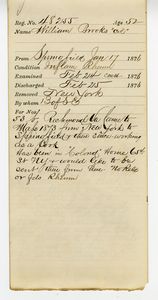 Reg. No. 48255 Age 52
Name William Brooks "col"
From Springfield Jan 17 1876
Condition Inflam Rheum
Examined Feb 24 1876
Discharged Feb 25 1876
Removed New York
By whom B of S C
For Nou
53 fr Richmond Va Came to
Mass 1873 from New York to
Springfield & then Since working
as a Cook
Has been in "Colored" Home 65th
St NY & would like to be
sent then from here No Rels